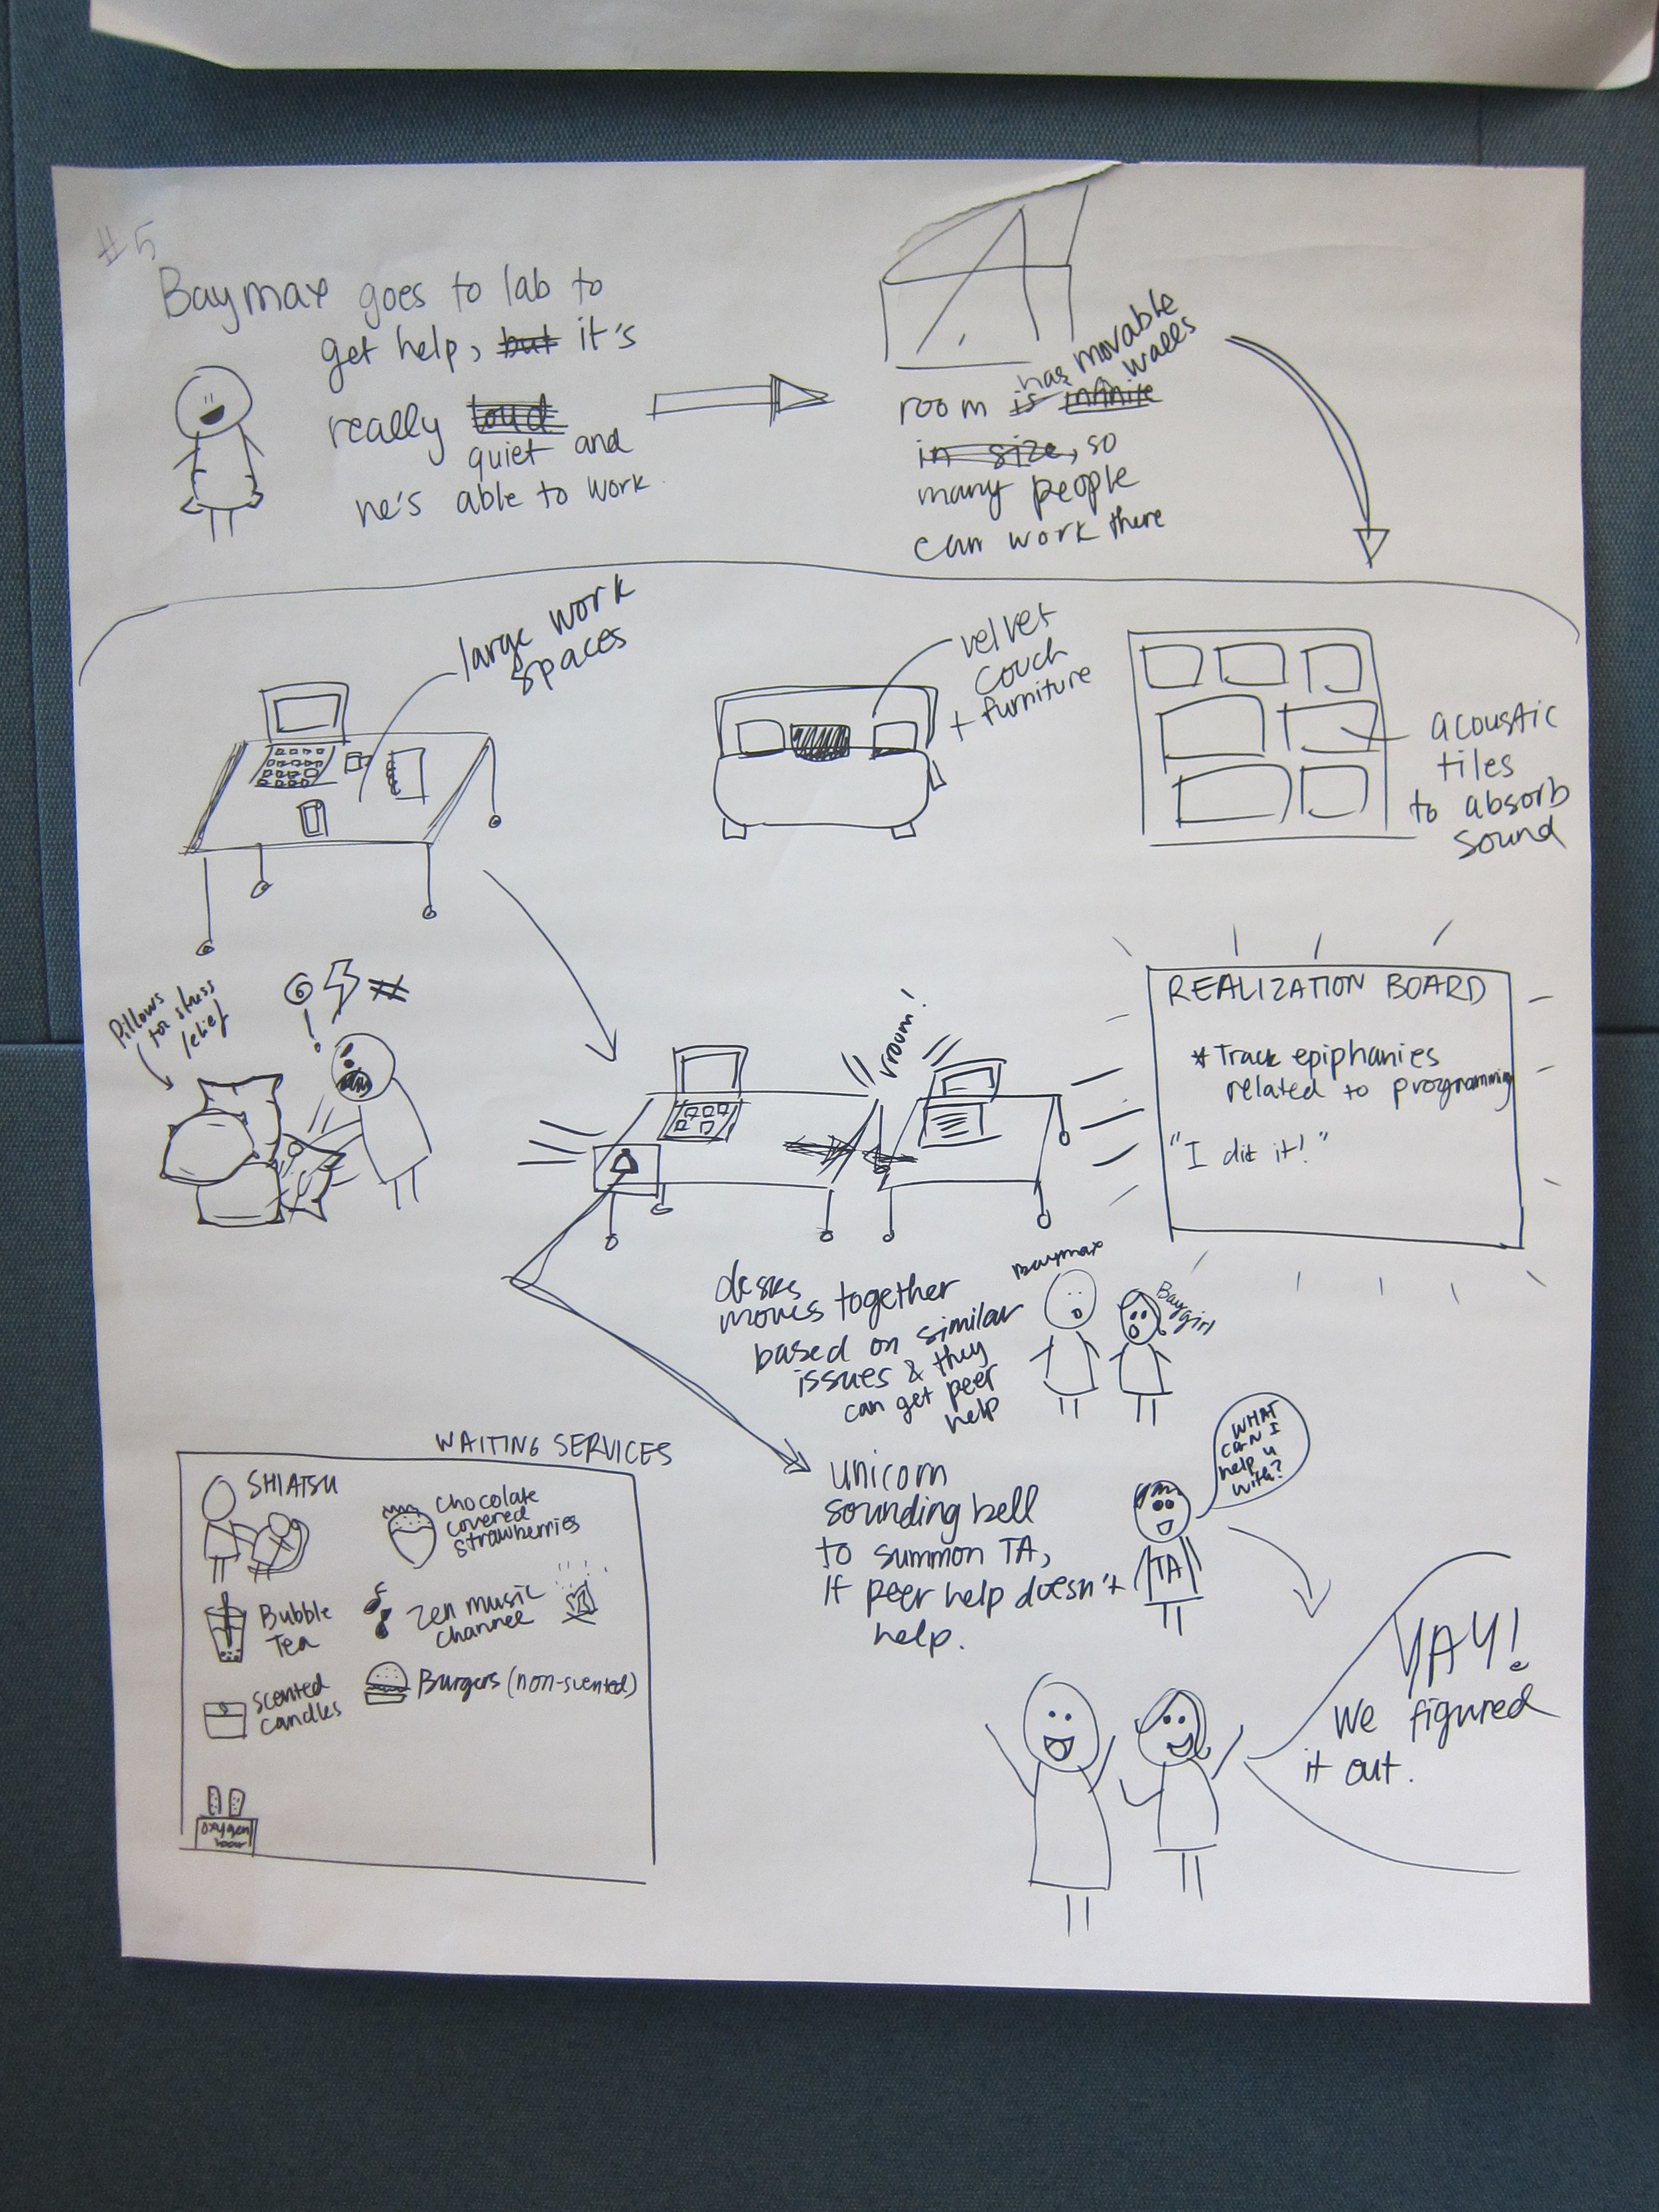 #5
Baymax goes to lab to
get help, but it's
really loud
quiet and
he's able to work.
has movable
walls
room is infinite
in size, so
many people
can work there
large work
spaces
velvet
couch
+ furniture
acoustic
tiles
to absorb
sound
Pillows
for stress
relief
! #
vroum!
REALIZATION BOARD
* Track epiphanies
related to programming
"I dit it!"
desks
moves together
based on similar
issues & they
can get peer
help
Baymax
Baygirl
unicorn
sounding bell
to summon TA,
If peer help doesn't
help.
WHAT
CAN I
help u
with?
TA
WAITING SERVICES
SHIATSU
chocolate
covered
strawberries
Bubble
Tea
Zen music
channel
scented
candles
Burgers (non-scented)
oxygen
YAY!
We figured
it out.